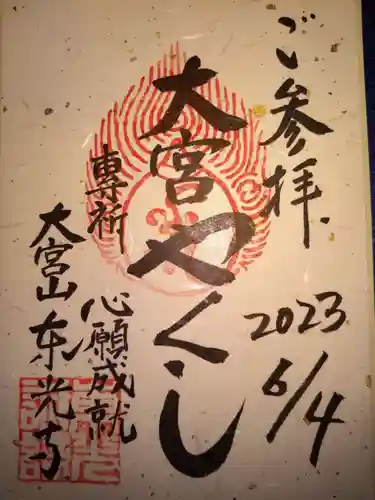 ご参拝
2023
6/4
大宮やくし
專祈
心願成就
大宮山东光寺